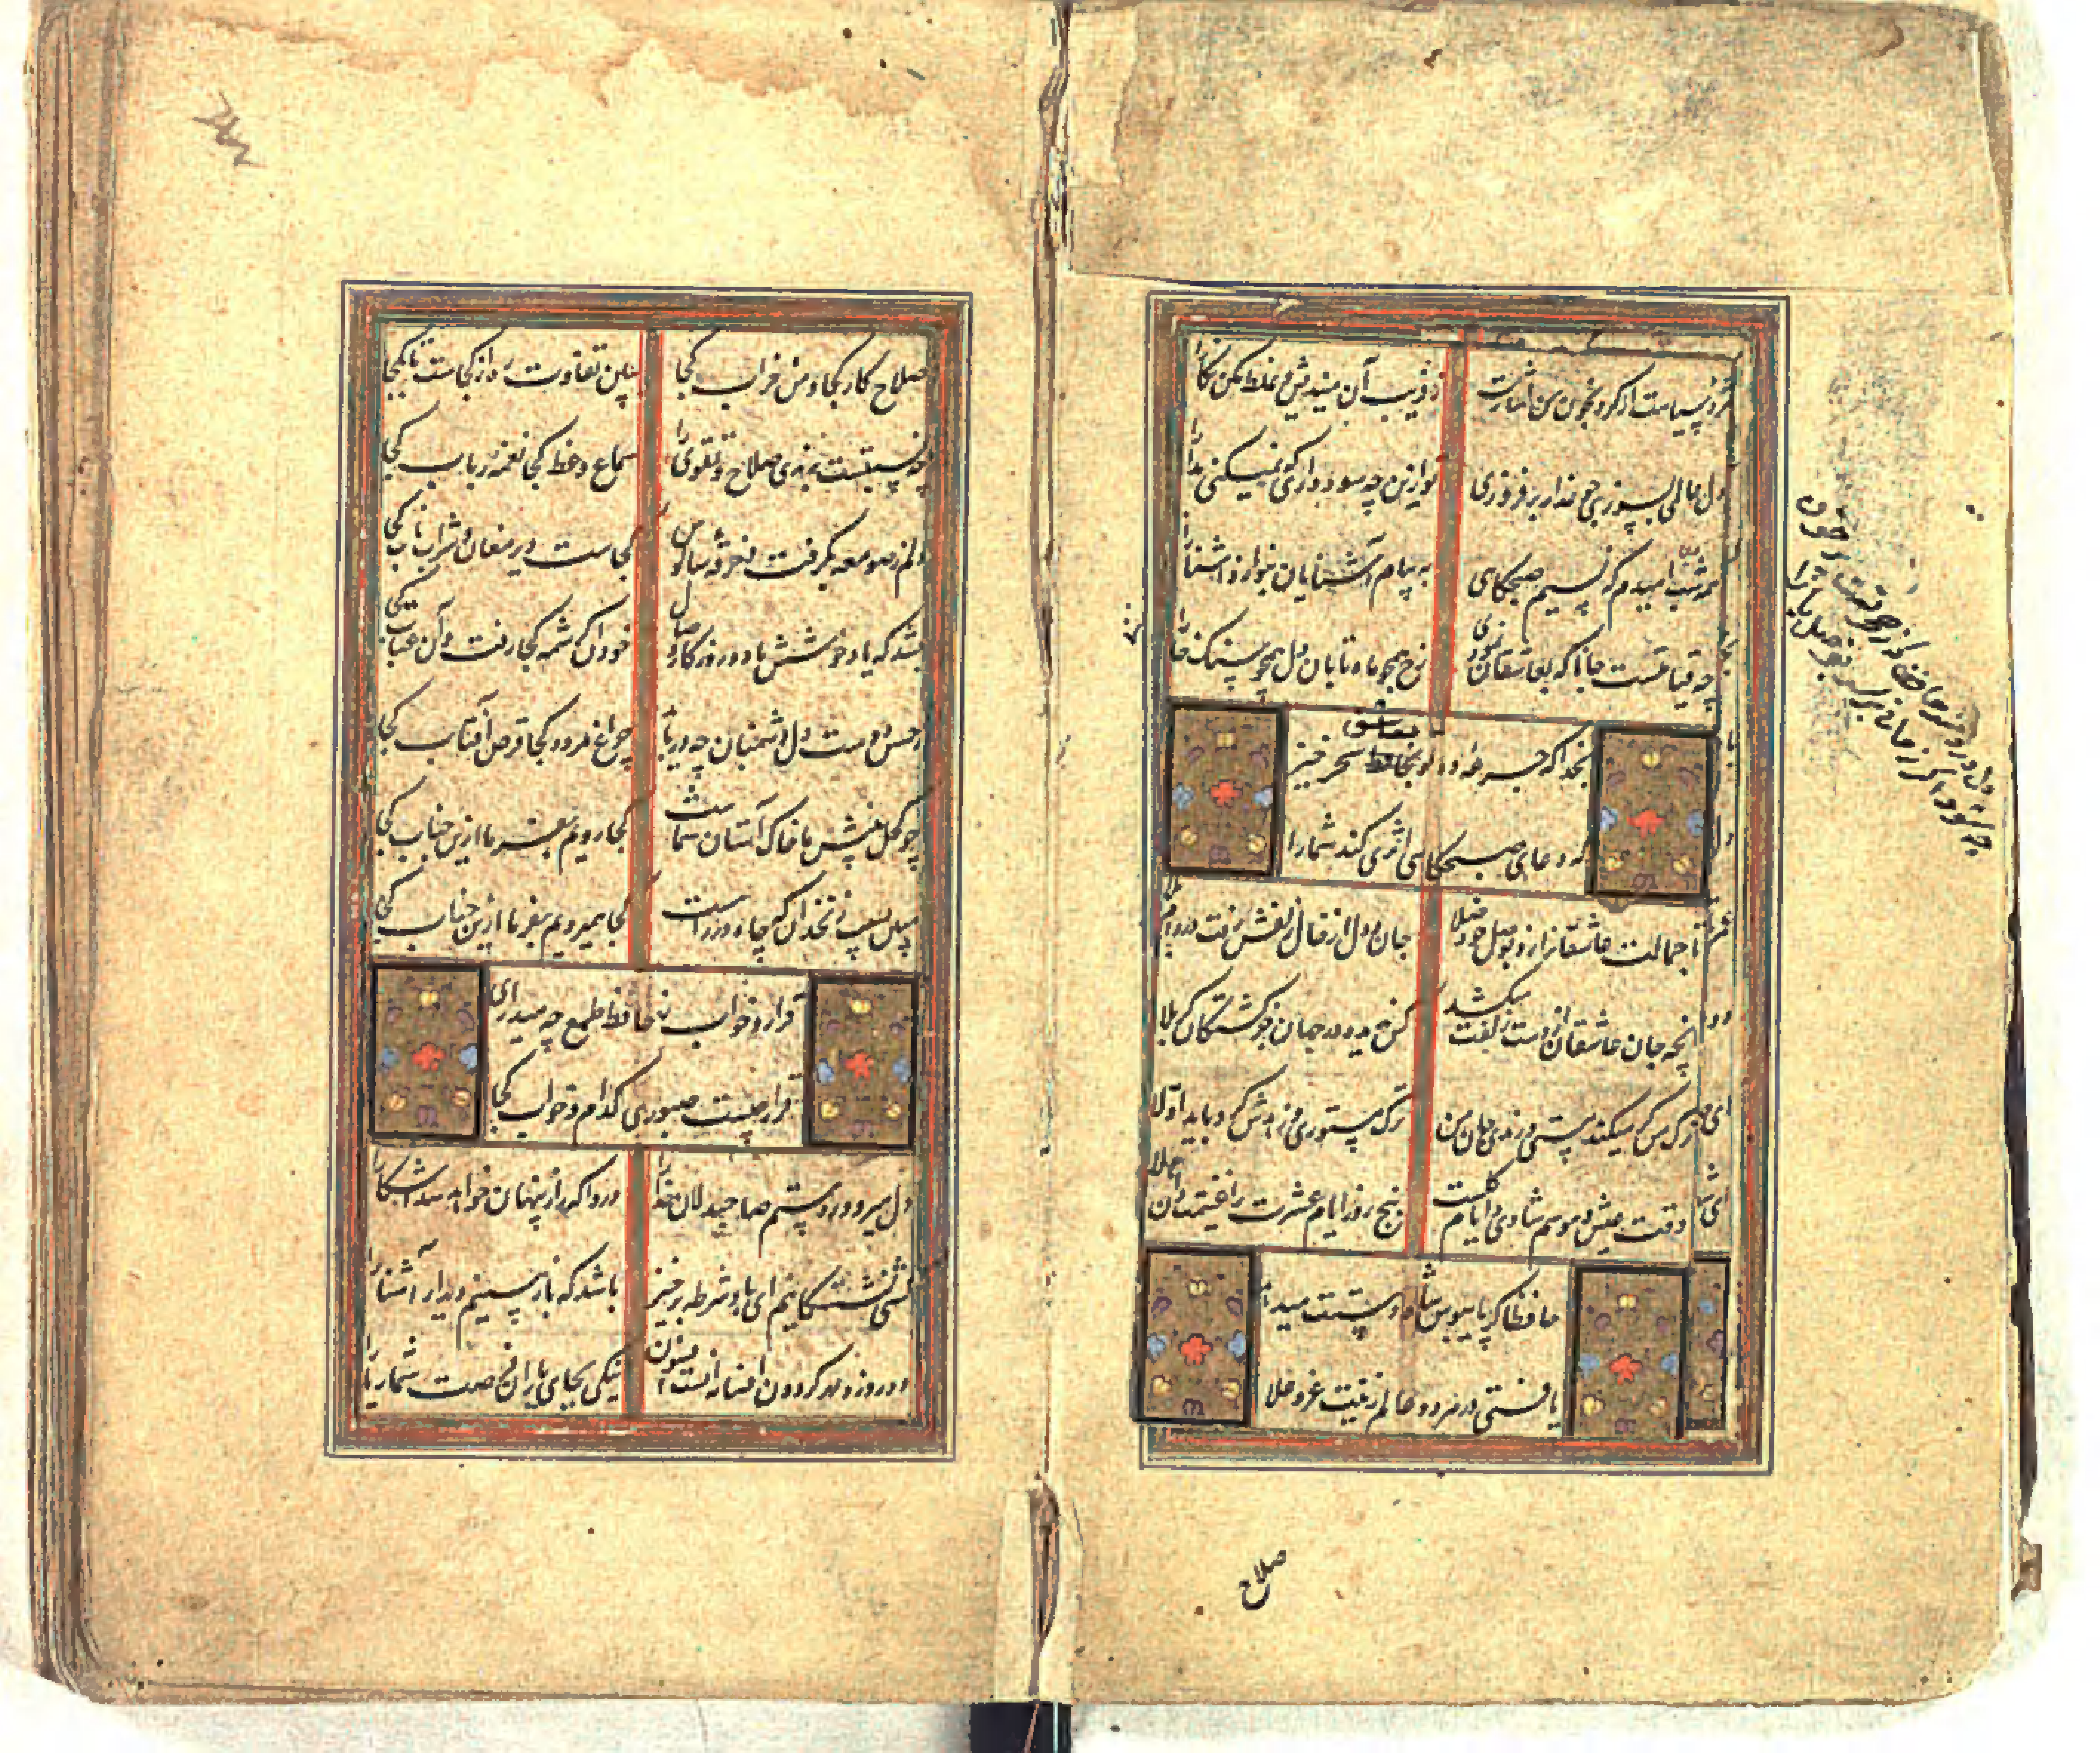 مژه سیاهت ار کرد بخون من اشارت
ز فریب آن میندیش و غلط مکن نگارا
دل عالمی بسوزی چو عذار برفروزی
تو ازین چه سود داری که نمیکنی مدارا
همه شب امیدم که نسیم صبحگاهی
به پیام آشنایان بنوازد آشنا را
چه قیامتست جانا که بعاشقان نمودی
رخ همچو ماه تابان دل همچو سنگ خارا
بخدا که جرعه ده تو بحافظ سحرخیز
بعاشق
که دعای صبحگاهی اثری کند شما را
تا جمالت عاشقانرا زد بوصل خود صلا
جان و دل از خال زلفش رفت در دام بلا
آنچه جان عاشقان از دست زلفت میکشد
کس ندیده در جهان جز کشتگان کربلا
ترک من گر میکند مستی و رندی جان من
ترک مستوری و زهدش کرد باید اولا
وقت عیش و موسم شادی و ایام گلست
پنج روز ایام عشرت را غنیمت دان هلا
حافظا گر پایبوس شاه دستت میدهد
یافتی در هر دو عالم زینت عز و علا
صلاح
صلاح کار کجا و من خراب کجا
ببین تفاوت ره از کجاست تا بکجا
چه نسبتست برندی صلاح و تقوی را
سماع وعظ کجا نغمه رباب کجا
دلم ز صومعه بگرفت و خرقه سالوس
کجاست دیر مغان و شراب ناب کجا
بشد که یاد خوشش باد روزگار وصال
خود آن کرشمه کجا رفت و آن عتاب کجا
ز حسن دوست دل دشمنان چه دریابد
چراغ مرده کجا قرص آفتاب کجا
چو کحل بینش ما خاک آستان شماست
کجا رویم بفرما ازین جناب کجا
مبین بسیب زنخدان که چاه در راهست
کجا همیرویم بفرما ازین جناب کجا
قرار و خواب ز حافظ طمع چه میداری
قرار چیست صبوری کدام و خواب کجا
دل میرود ز دستم صاحبدلان خدا را
دردا که راز پنهان خواهد شد آشکارا
کشتی نشستگانیم ای باد شرطه برخیز
باشد که باز بینیم دیدار آشنا را
ده روزه مهر گردون افسانه است و افسون
نیکی بجای یاران فرصت شمار یارا